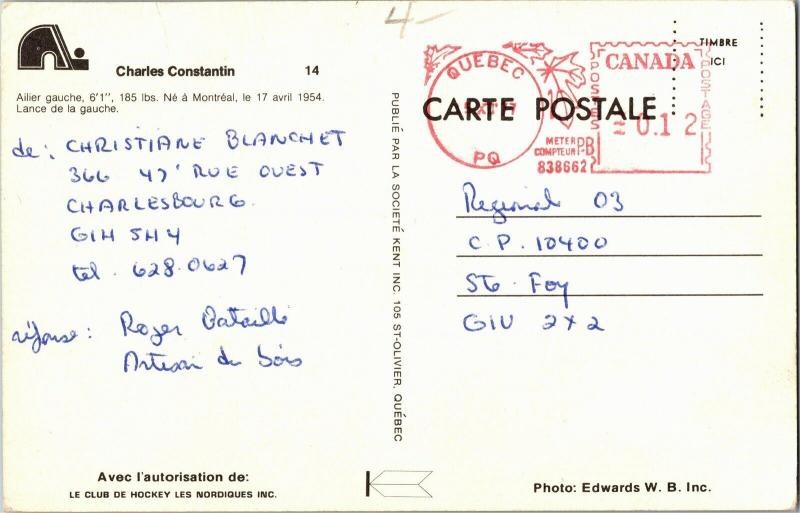 4-
Charles Constantin 14
Ailier gauche, 6'1", 185 lbs. Né à Montréal, le 17 avril 1954.
Lance de la gauche.
de: CHRISTIANE BLANCHET
366 47' RUE OUEST
CHARLESBOURG
G1H 5H4
tel. 628.0627
réponse: Roger Bataille
Artisan du bois
Avec l'autorisation de:
LE CLUB DE HOCKEY LES NORDIQUES INC.
PUBLIÉ PAR LA SOCIETÉ KENT INC. 105 ST-OLIVIER, QUÉBEC
QUEBEC
PQ
METER
COMPTEUR
P.B.
838662
POSTES
CANADA
POSTAGE
= 0.1 2
TIMBRE
ICI
CARTE POSTALE
Regional 03
C.P. 10400
Ste. Foy
G1V 2X2
Photo: Edwards W. B. Inc.